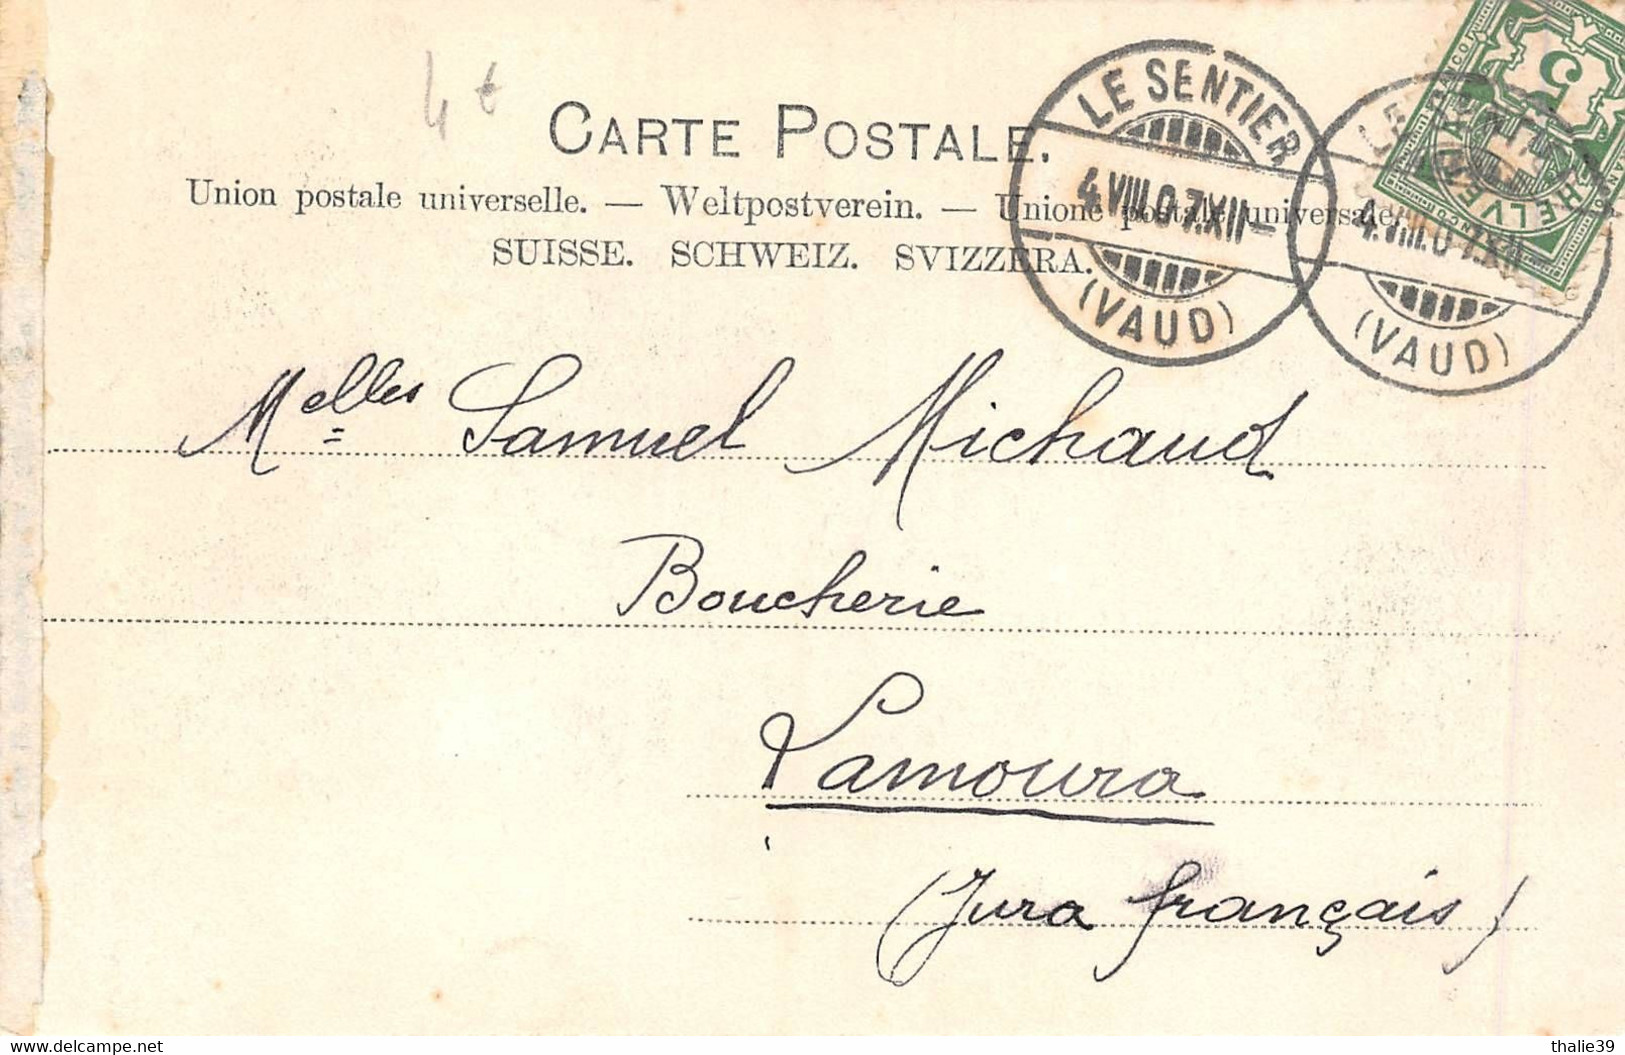 4 t
CARTE POSTALE.
Union postale universelle. — Weltpostverein. — Unione postale universale.
SUISSE. SCHWEIZ. SVIZZERA.
LE SENTIER
4.VIII.07.XII–
(VAUD)
LE SENTIER
4.VIII.07.XII
(VAUD)
5
HELVETIA
FRANCO
Melles Samuel Michaud
Boucherie
Lamoura
(Jura français)
www.delcampe.net
thalie39